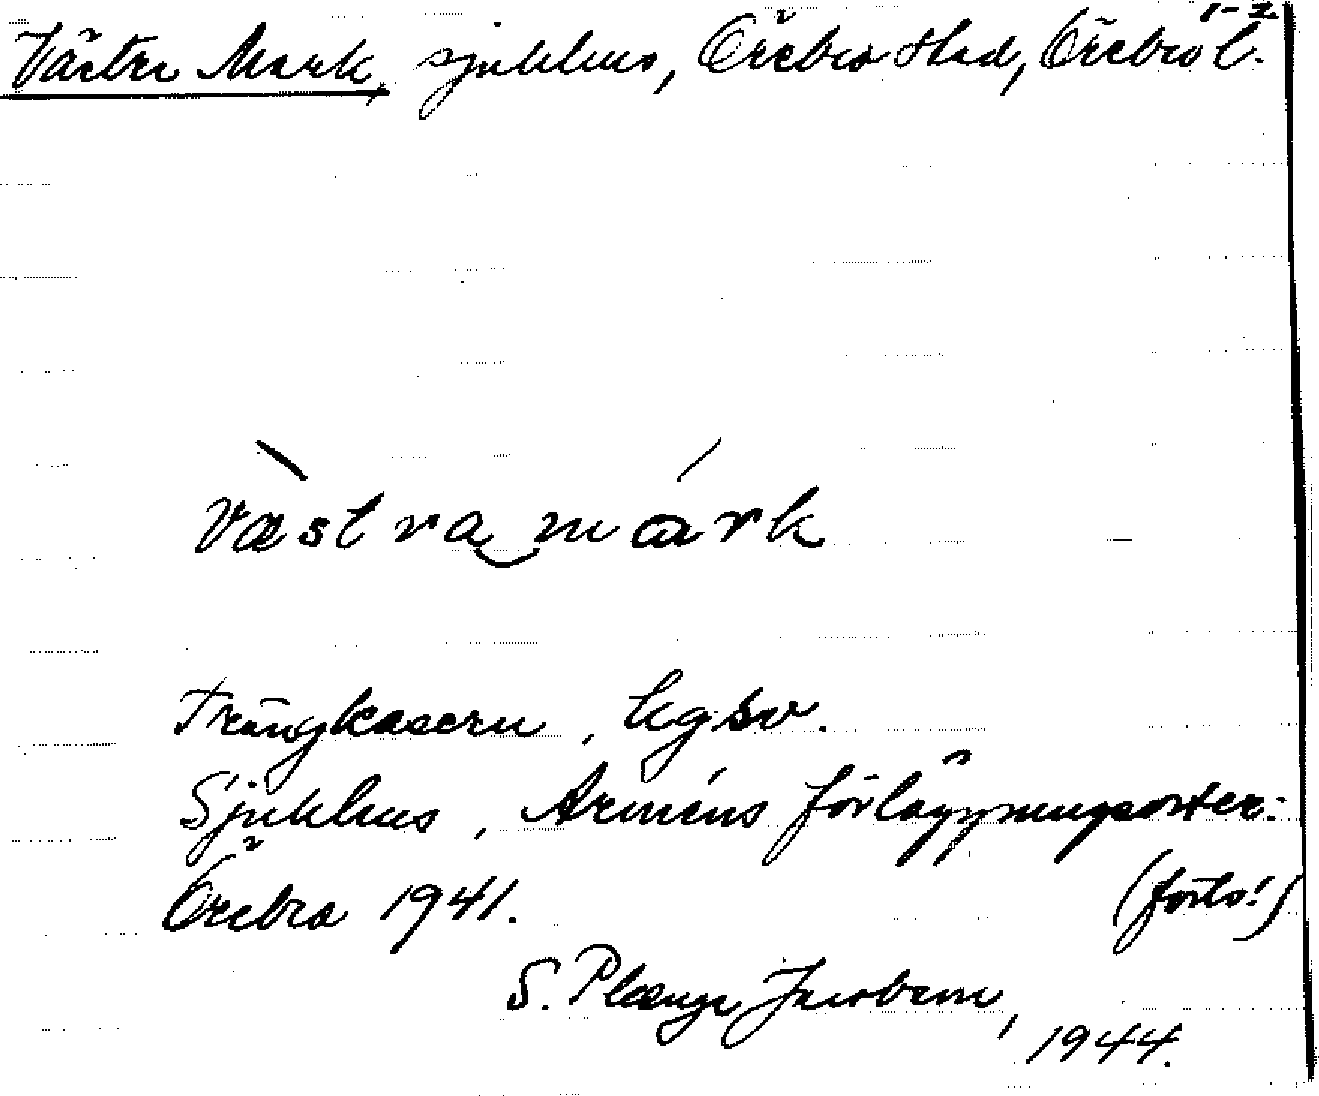 1-2
Västra Mark, sjukhus, Örebro stad, Örebro l.
væ̀stra‿márk
Trängkasern, kgsv.
Sjukhus, Arméns förläggningsorter:
Örebro 1941.
(forts!)
S. Plænge Jacobson,
1944.